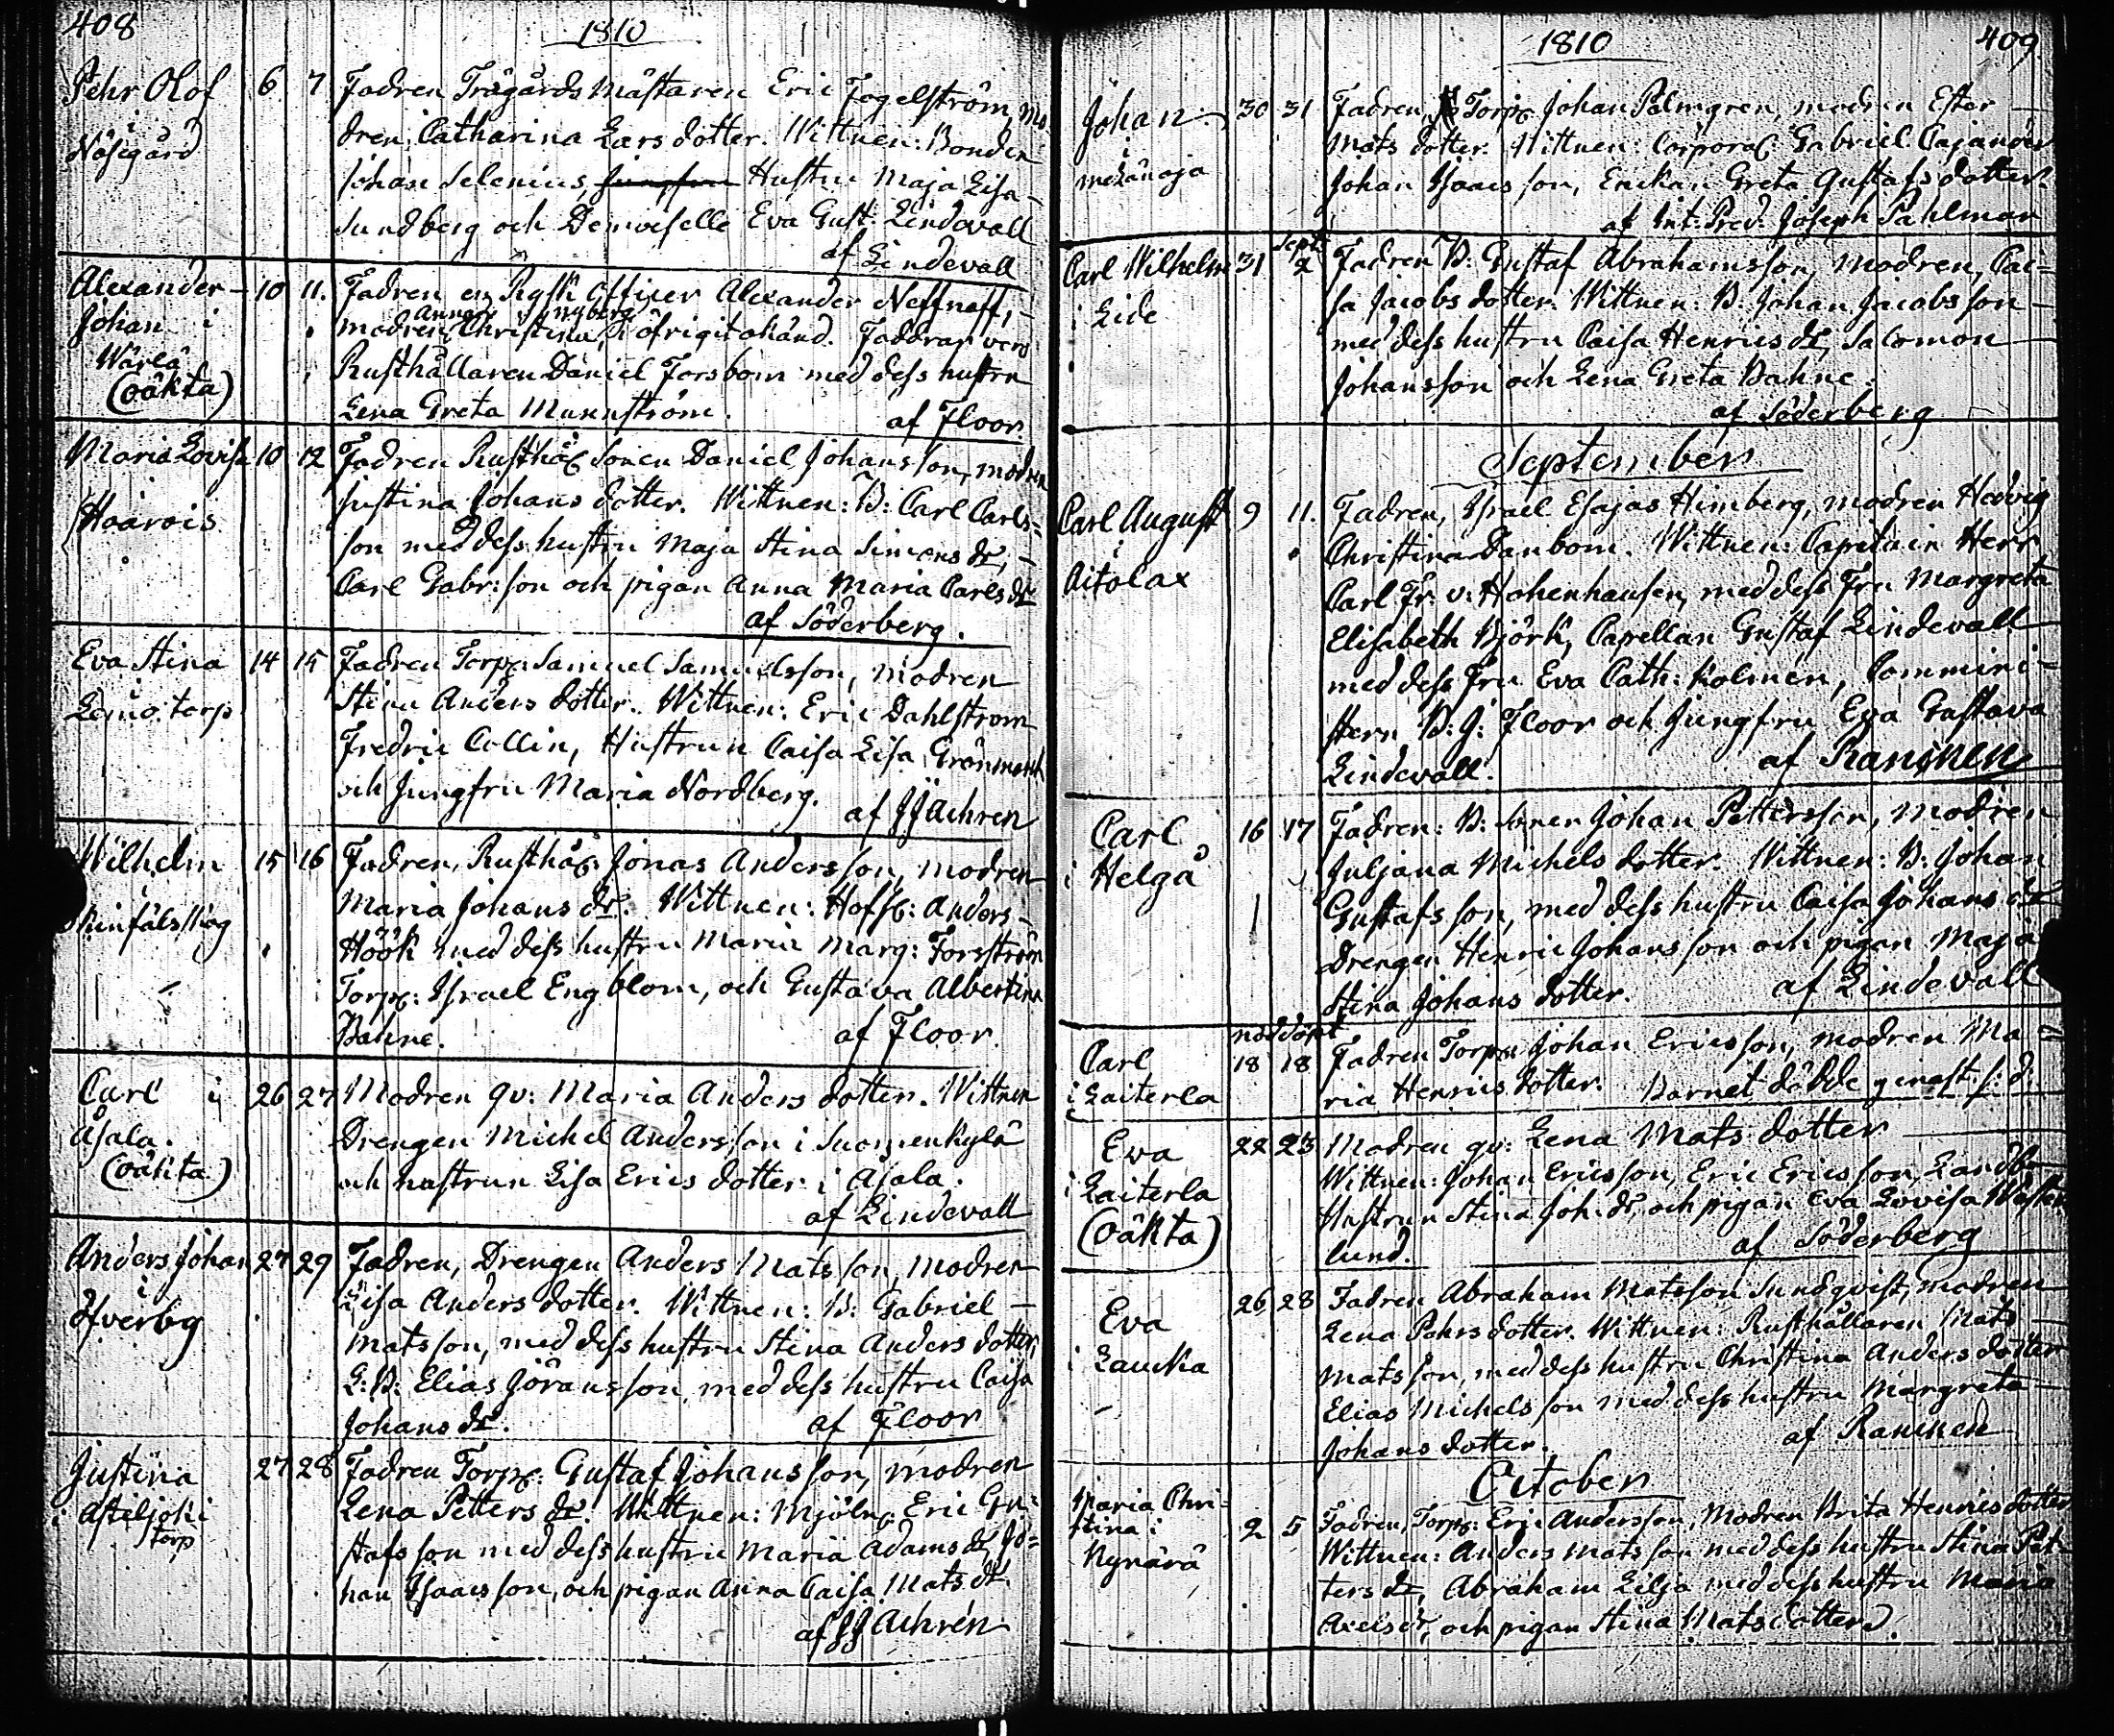 408
1810
Pehr Olof
i
Näsegård
6 7 Fadren Trägårds Mästaren Eric Fogelström, mo
dren, Catharina Lars dotter. Wittnen: Bonden
Johan Selenius, Hustru Maja Lisa
Sundberg och Demoiselle Eva Gust: Lindevall
af Lindevall
Alexander
Johan i
Wärlä
(oäkta)
10 11. Fadren en Rysk Officer Alexander Neffneff,
modren Christina Nyberg, i öfrigit ohänd. Faddrar vero
Rusthållaren Daniel Forsbom med dess hustru
Lena Greta Munnström.
af Floor.
Maria Lovisa
Hoarois
10 12 Fadren Rusthål Sonen Daniel Johansson, modren
Justina Johans dotter. Wittnen: B: Carl Carls=
son med dess hustru Maja Stina Simons dr,
Carl Gabr: son och pigan Anna Maria Carls dr
af Söderberg.
Eva Stina
i
Lemo torp
14 15 Fadren Torp: Samuel Samuelsson, modren
Stina Anders dotter. Wittnen: Eric Dahlstrom
Fredric Collin, Hustrun Caisa Lisa
och Jungfru Maria Nordberg.
af JJAchren
Wilhelm
i
15 16 Fadren, Rusthål: Jonas Andersson, modren
Maria Johans dr. Wittnen: Anders
Höök med dess hustru Maria Marg: Forsström
Torp: Israel Engblom, och Gustava Albertina
Bahne.
af Floor.
Carl i
Asala.
(oäkta)
26 27 Modren qv: Maria Anders dotter. Wittnen
Drengen Michel Andersson i Suomenkylä
och hustrun Lisa Erics dotter i Asala.
af Lindevall
Anders Johan
i
Öfverby
27 29 Fadren, Drengen Anders Matsson, modren
Lisa Anders dotter. Wittnen: B: Gabriel
Matsson, med dess hustru Stina Anders dotter,
L: B: Elias Jöransson med dess hustru Caisa
Johans dr.
af Floor
Justina
i Asteljoki
torp
27 28 Fadren Torp: Gustaf Johansson, modren
Lena Petters dr. Wittnen: Mjöln: Eric Gu=
stafsson med dess hustru Maria Adams dr, Jo=
han Isaacsson, och pigan Anna Caisa Mats dr.
af JJ Achrén
1810
409
Johan
i
30 31 Fadren, Torp: Johan Palmgren, modren Ester
Mats dotter. Wittnen: Corporal Gabriel Cajander
Johan Isaacsson, Enckan Greta Gustafs dotter.
af Int: Pred: Joseph Pahlman
Carl Wilhelm
i Lide
Sept:
31 2 Fadren B: Gustaf Abrahamsson, Modren, Cai=
sa Jacobs dotter. Wittnen: B: Johan Jacobsson
med dess hustru Caisa Henrics dr, Salomon
Johansson och Lena Greta Bahne.
af Söderberg
September
Carl August
i
Aitolax
9 11. Fadren, Israel Esajas Himberg, modren Hedvig
Christina Danbom. Wittnen: Capitain Herr
Carl Fr: v: Hohenhausen, med dess Fru Margreta
Elisabeth Björk, Capellan Gustaf Lindevall
med dess Fru Eva Cath: Kolmen, Commini-
stern B: J: Floor och Jungfru Eva Gustava
Lindevall.
af Rancken
Carl
i Helgå
16 17 Fadren: B: Sonen Johan Pettersson, modren
Juljana Michels dotter. Wittnen: B: Johan
Gustafsson, med dess hustru Caisa Johans dr
Drengen Henric Johansson och pigan Maja
Stina Johans dotter.
af Lindevall
Carl
i Laiterla
nöddöpt
18 18 Fadren Torp: Johan Ericsson, modren Ma=
ria Henrics dotter. Barnet dödde genast s: d:
Eva
i Laiterla
(oäkta)
22 23 Modren qv: Lena Mats dotter
Wittnen: Johan Ericsson, Eric Ericsson, Landb:
Hustrun Stina Joh: dr, och pigan Eva Lovisa Wester
lund.
af Söderberg
Eva
i Laucka
26 28 Fadren Abraham Matsson Sundqvist, modren
Lena Pehrs dotter. Wittnen: Rusthållaren Mats
Matsson, med dess hustru Christina Anders dotter
Elias Michelsson med dess hustru Margreta
Johans dotter.
af Rancken
October
Maria Chri-
stina i
Kynärä
2 5 Fadren, Torp: Eric Andersson, Modren Brita Henrics dotter
Wittnen: Anders Matsson med dess hustru Stina Pet-
ters dr, Abraham Lilja med dess hustru Maria
Axels dr, och pigan Stina Mats dotter.